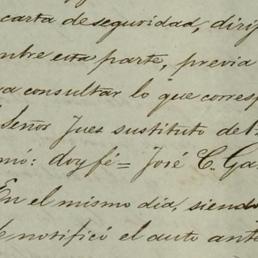 carta de seguridad, diri
entre esta parte, previa
a consultar lo que corresp
Señor Juez sustituto de
mó: doy fé= José C. Ga
En el mismo dia, siendo
le notificó el auto ante